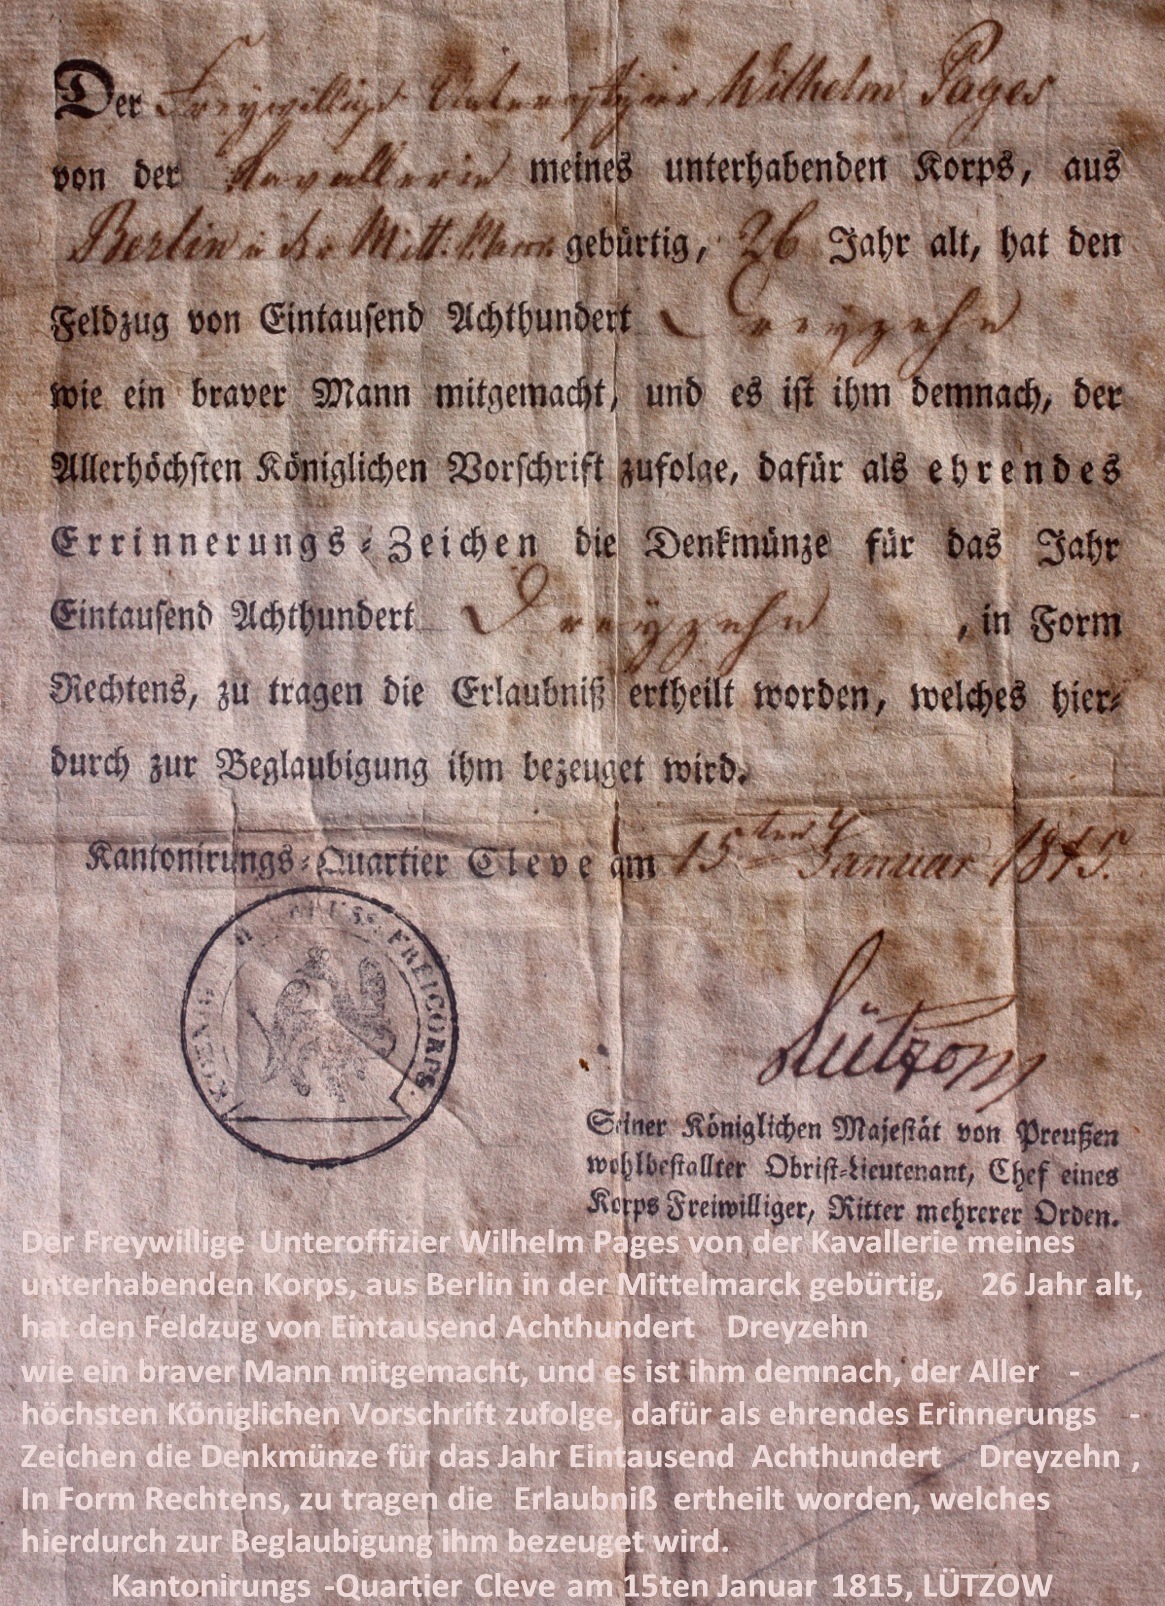 Der Freywillige Unteroffizier Wilhelm Pages
von der Kavallerie meines unterhabenden Korps, aus
Berlin in der Mitt: Marck gebürtig, 26 Jahr alt, hat den
Feldzug von Eintausend Achthundert Dreyzehn
wie ein braver Mann mitgemacht, und es ist ihm demnach, der
Allerhöchsten Königlichen Vorschrift zufolge, dafür als ehrendes
Errinnerungs-Zeichen die Denkmünze für das Jahr
Eintausend Achthundert Dreyzehn , in Form
Rechtens, zu tragen die Erlaubniß ertheilt worden, welches hier-
durch zur Beglaubigung ihm bezeuget wird.
Kantonirungs-Quartier Cleve am 15ten Januar 1815.
FREICORPS.
Lützow
Seiner Königlichen Majestät von Preußen
wohlbestallter Obrist-Lieutenant, Chef eines
Korps Freiwilliger, Ritter mehrerer Orden.
Der Freywillige Unteroffizier Wilhelm Pages von der Kavallerie meines
unterhabenden Korps, aus Berlin in der Mittelmarck gebürtig, 26 Jahr alt,
hat den Feldzug von Eintausend Achthundert Dreyzehn
wie ein braver Mann mitgemacht, und es ist ihm demnach, der Aller -
höchsten Königlichen Vorschrift zufolge, dafür als ehrendes Erinnerungs -
Zeichen die Denkmünze für das Jahr Eintausend Achthundert Dreyzehn ,
In Form Rechtens, zu tragen die Erlaubniß ertheilt worden, welches
hierdurch zur Beglaubigung ihm bezeuget wird.
Kantonirungs -Quartier Cleve am 15ten Januar 1815, LÜTZOW